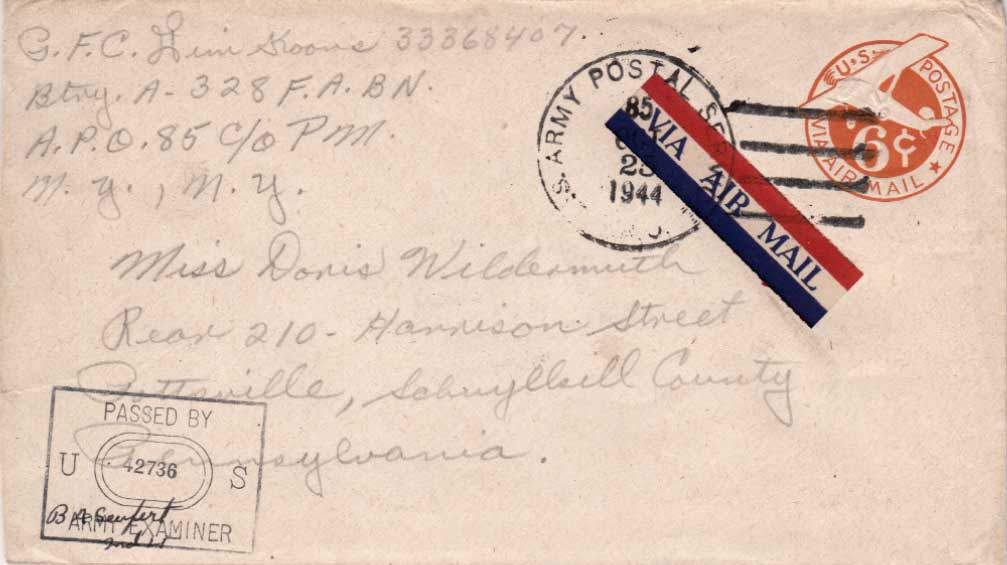 G. F. C. Koons 33368407.
Btry. A - 328 F. A. BN.
A. P. O. 85 c/o P M.
N. Y., N. Y.
U.S. ARMY POSTAL
85
25
1944
VIA AIR MAIL
U.S. POSTAGE
6¢
VIA AIR MAIL
Miss Doris Wildermuth
Rear 210 - Harrison Street
Pottsville, Schuylkill County
Pennsylvania.
PASSED BY
U 42736 S
ARMY EXAMINER
2nd Lt